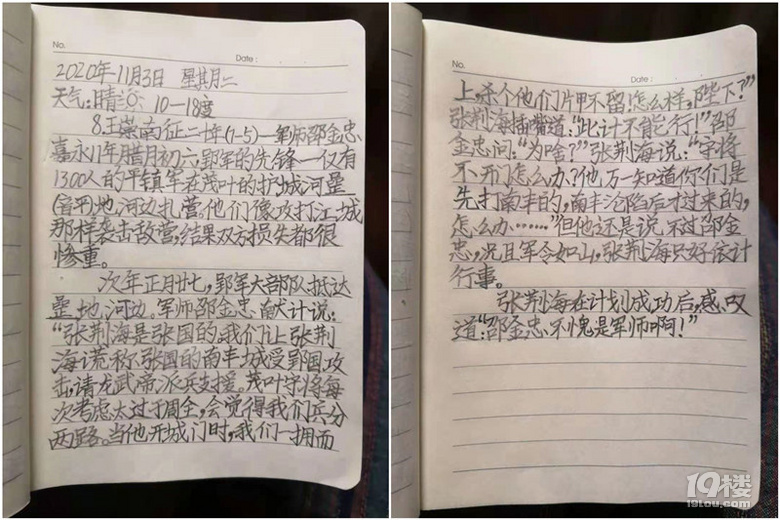 No.
Date :
2020年11月3日 星其月二
天气:晴 10—18度
8.王崇南征二十年(7-5)—军师邵金忠
嘉永11年腊月初六,郢军的先锋—仅有
1300人的平镇军在茂叶的护城河罡
(音平)地河边扎营。他们像攻打江城
那样袭击敌营,结果双方损失都很
惨重。
次年正月廿七,郢军大部队抵达
罡地河边。军师邵金忠献计说:
“张荆海是张国的,我们让张荆
海谎称张国的南丰城受郢国攻
击,请龙武帝派兵支援。茂叶守将每
次考虑太过于周全,会觉得我们兵分
两路。当他开城门时,我们一拥而
No.
Date :
上,杀个他们片甲不留!怎么样,陛下?”
张荆海插嘴道:“此计不能行!”邵
金忠问:“为啥?”张荆海说:“守将
不开门怎么办?他万一知道你们是
先打南丰的,南丰沦陷后才过来的,
怎么办……”但他还是说不过邵金
忠,况且军令如山,张荆海只好依计
行事。
张荆海在计划成功后,感叹
道:“邵金忠不愧是军师啊!”
19楼
19lou.com